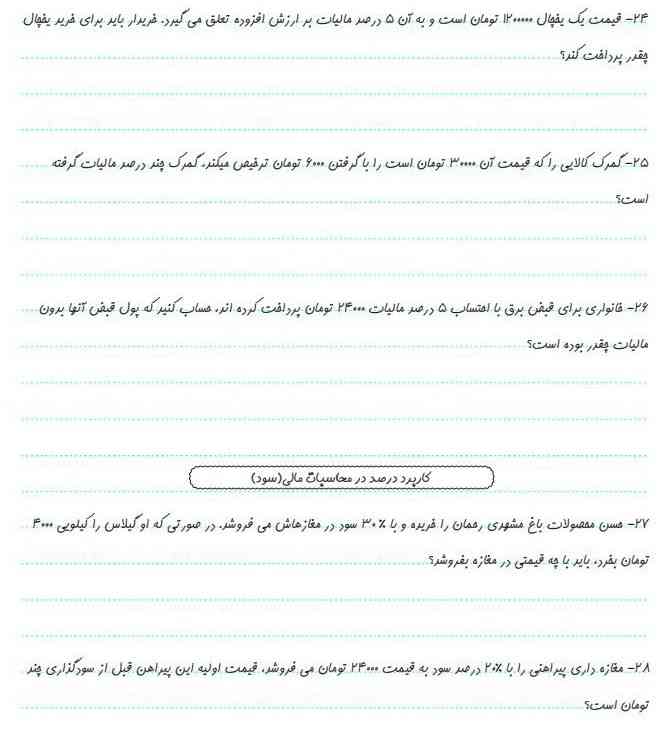 ۲۴- قیمت یک یخچال ۱۲۰۰۰۰۰ تومان است و به آن ۵ درصد مالیات بر ارزش افزوده تعلق می گیرد. خریدار باید برای خرید یخچال
چقدر پرداخت کند؟
۲۵- گمرک کالایی را که قیمت آن ۳۰۰۰۰ تومان است را با گرفتن ۶۰۰۰ تومان ترخیص میکند. گمرک چند درصد مالیات گرفته
است؟
۲۶- خانواری برای قبض برق با احتساب ۵ درصد مالیات ۲۴۰۰۰ تومان پرداخت کرده اند. حساب کنید که پول قبض آنها بدون
مالیات چقدر بوده است؟
کاربرد درصد در محاسبات مالی(سود)
۲۷- حسن محصولات باغ مشهدی رحمان را خریده و با ۳۰٪ سود در مغازهاش می فروشد. در صورتی که او گیلاس را کیلویی ۴۰۰۰
تومان بخرد، باید با چه قیمتی در مغازه بفروشد؟
۲۸- مغازه داری پیراهنی را با ۲۰٪ درصد سود به قیمت ۲۴۰۰۰ تومان می فروشد، قیمت اولیه این پیراهن قبل از سودگذاری چند
تومان است؟